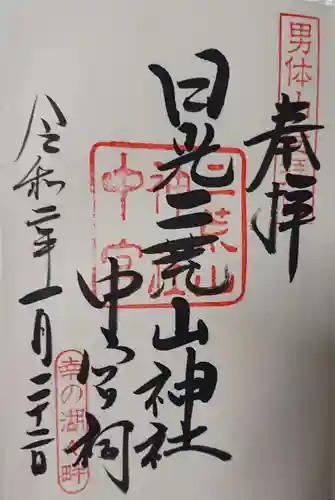 奉拝
日光二荒山神社
中宮祠
令和二年一月二十二日
二荒山
神社
中宮
幸の湖畔